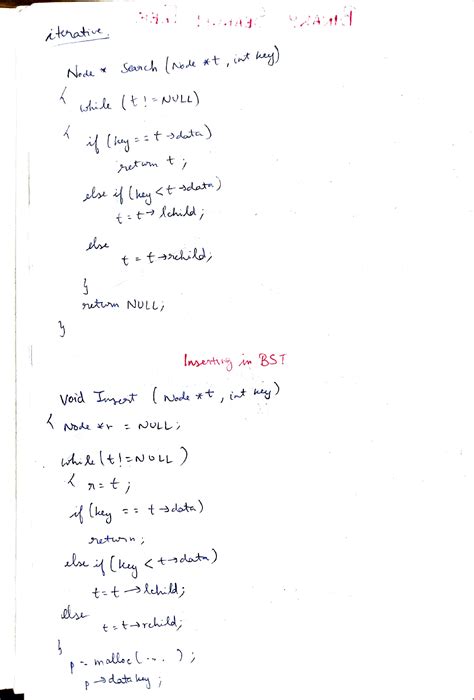 iterative.
Node * Search (Node *t, int key)
{
while (t != NULL)
{
if (key == t→data)
return t;
else if (key < t→data)
t = t→lchild;
else
t = t→rchild;
}
return NULL;
}
Inserting in BST
void Insert (Node *t, int key)
{ Node *r = NULL;
while (t != NULL)
{ r = t;
if (key == t→data)
return;
else if (key < t→data)
t = t→lchild;
else
t = t→rchild;
}
p = malloc(...);
p→data key;